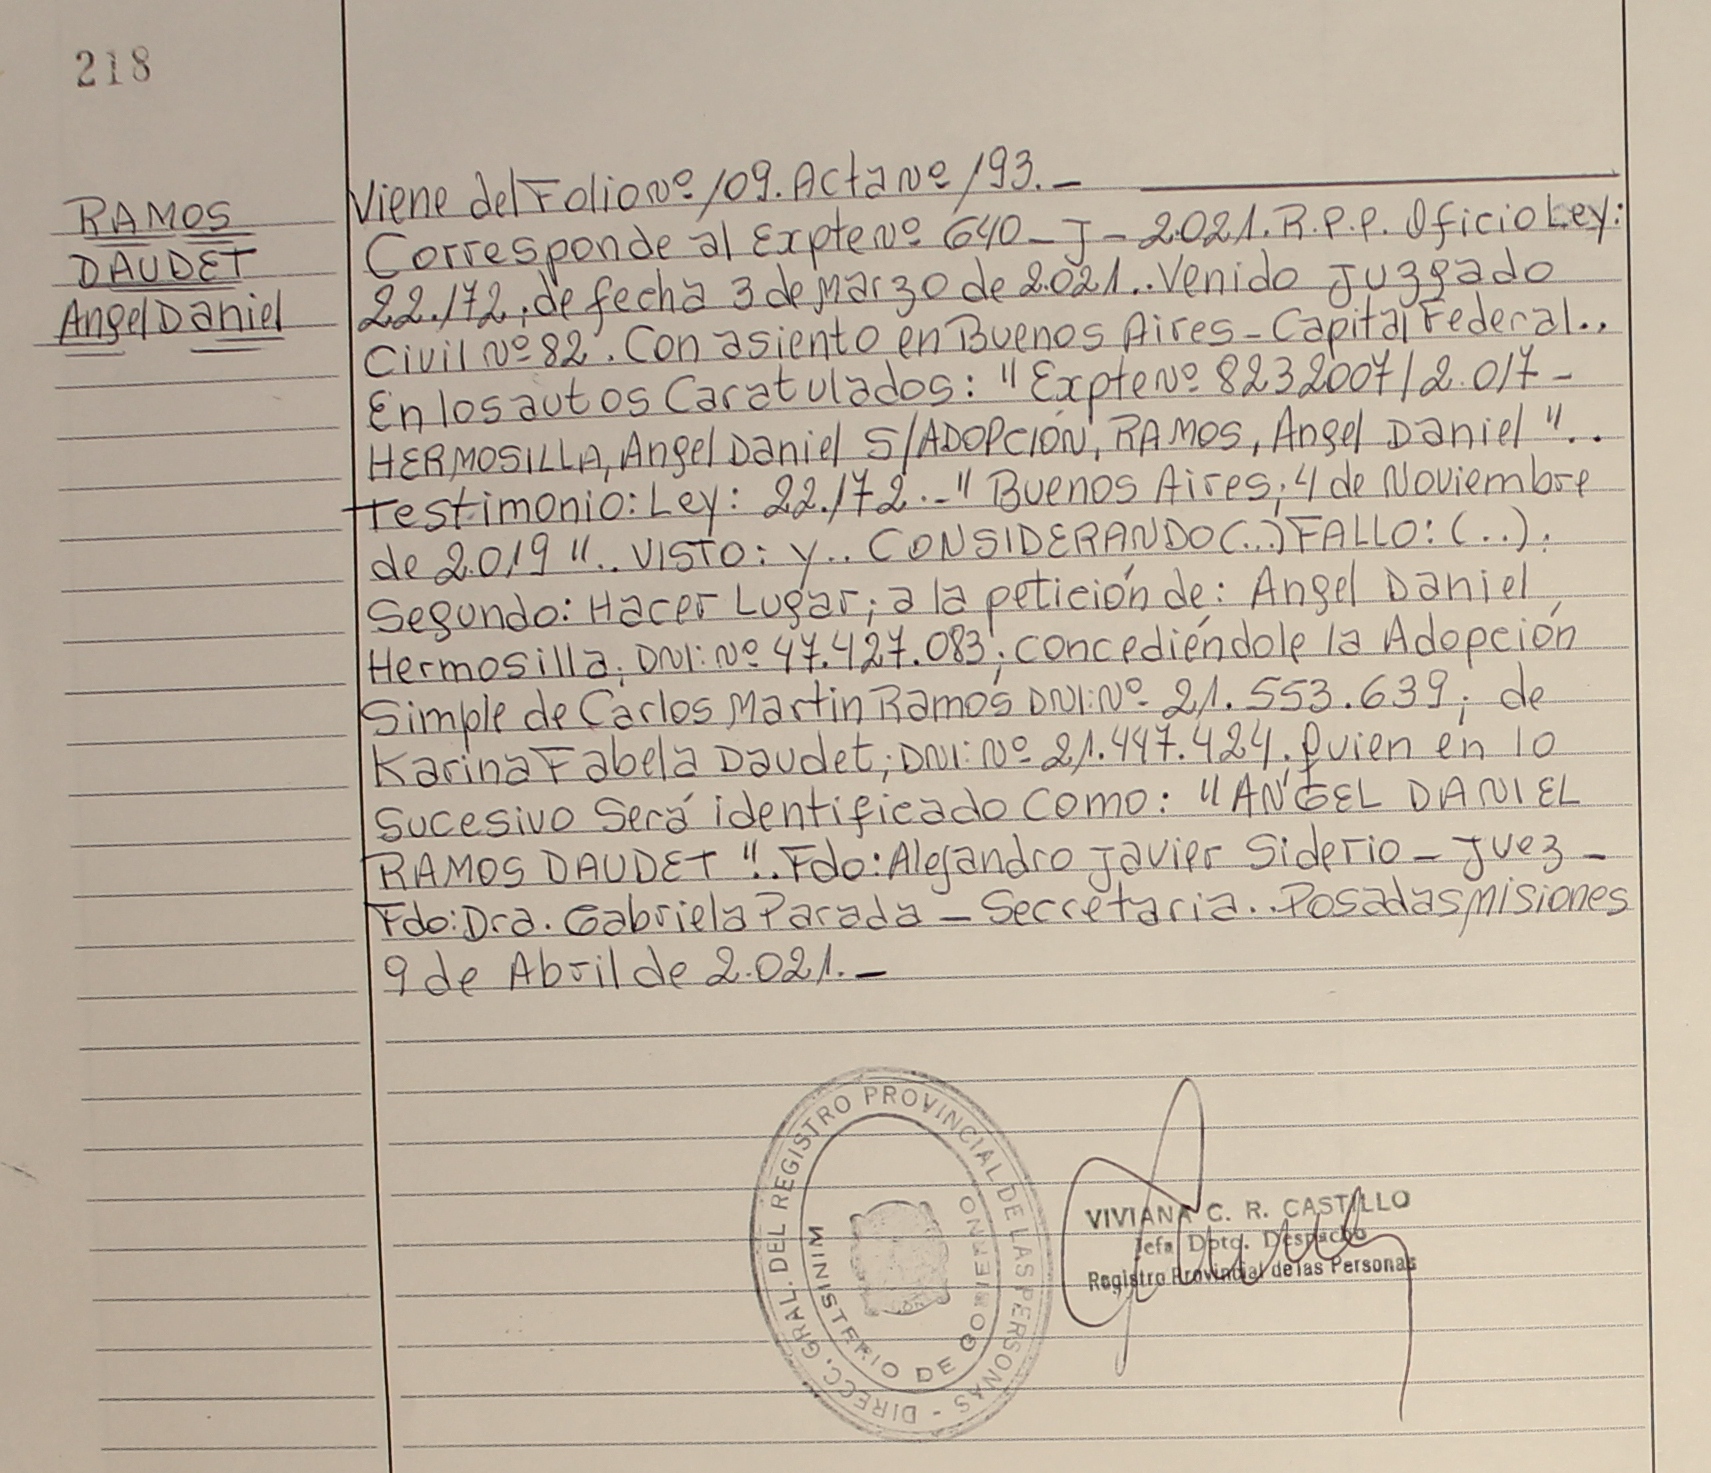 218
RAMOS
DAUDET
Angel Daniel
Viene del Folio Nº 109. Acta Nº 193. _
Corresponde al Expte Nº 640 _ J _ 2.021. R.P.P. Oficio Ley:
22.172, de fecha 3 de Marzo de 2.021.. Venido Juzgado
Civil Nº 82. Con asiento en Buenos Aires - Capital Federal..
En los autos Caratulados: "Expte Nº 8232007/2.017 -
HERMOSILLA, Angel Daniel S/ADOPCIÓN, RAMOS, Angel Daniel"..
Testimonio: Ley: 22.172._ "Buenos Aires, 4 de Noviembre
de 2.019".. VISTO: y.. CONSIDERANDO(..) FALLO: (..).
Segundo: Hacer Lugar; a la petición de: Angel Daniel
Hermosilla; DNI: Nº 47.427.083; concediéndole la Adopción
Simple de Carlos Martin Ramos DNI: Nº 21.553.639; de
Karina Fabela Daudet; DNI: Nº 21.447.424. Quien en lo
Sucesivo Será identificado Como: "ANGEL DANIEL
RAMOS DAUDET".. Fdo: Alejandro Javier Siderio _ Juez _
Fdo: Dra. Gabriela Parada _ Secretaria.. Posadas Misiones
9 de Abril de 2.021. _
DIRECC. GRAL. DEL REGISTRO PROVINCIAL DE LAS PERSONAS -
MINISTERIO DE GOBIERNO
VIVIANA C. R. CASTILLO
Jefa Dpto. Despacho
Registro Provincial de las Personas